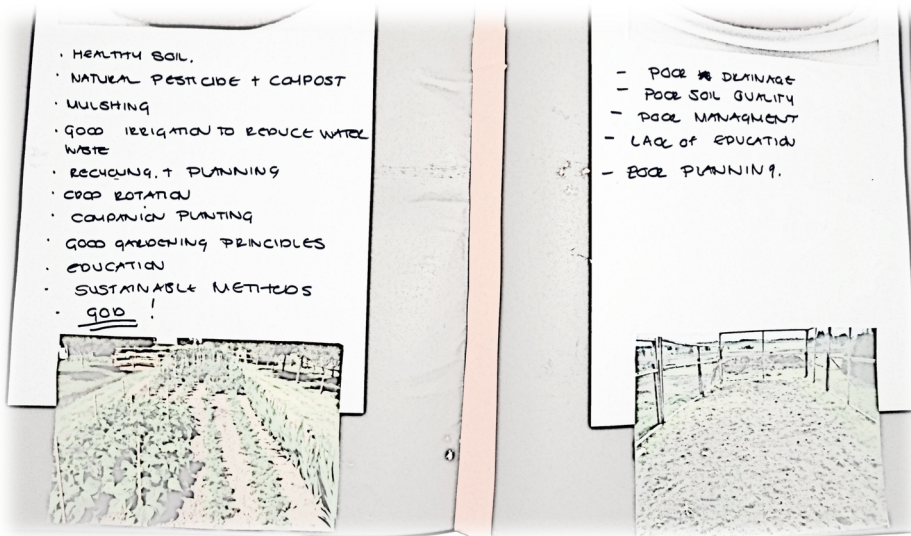 · HEALTHY SOIL.
· NATURAL PESTICIDE + COMPOST
· MULSHING
· GOOD IRRIGATION TO REDUCE WATER
WASTE
· RECYCLING. + PLANNING
· CROP ROTATION
· COMPANION PLANTING
· GOOD GARDENING PRINCIPLES
· EDUCATION
· SUSTAINABLE METHODS
· GOD !
- POOR DRAINAGE
- POOR SOIL QUALITY
- POOR MANAGMENT
- LACK OF EDUCATION
- POOR PLANNING.